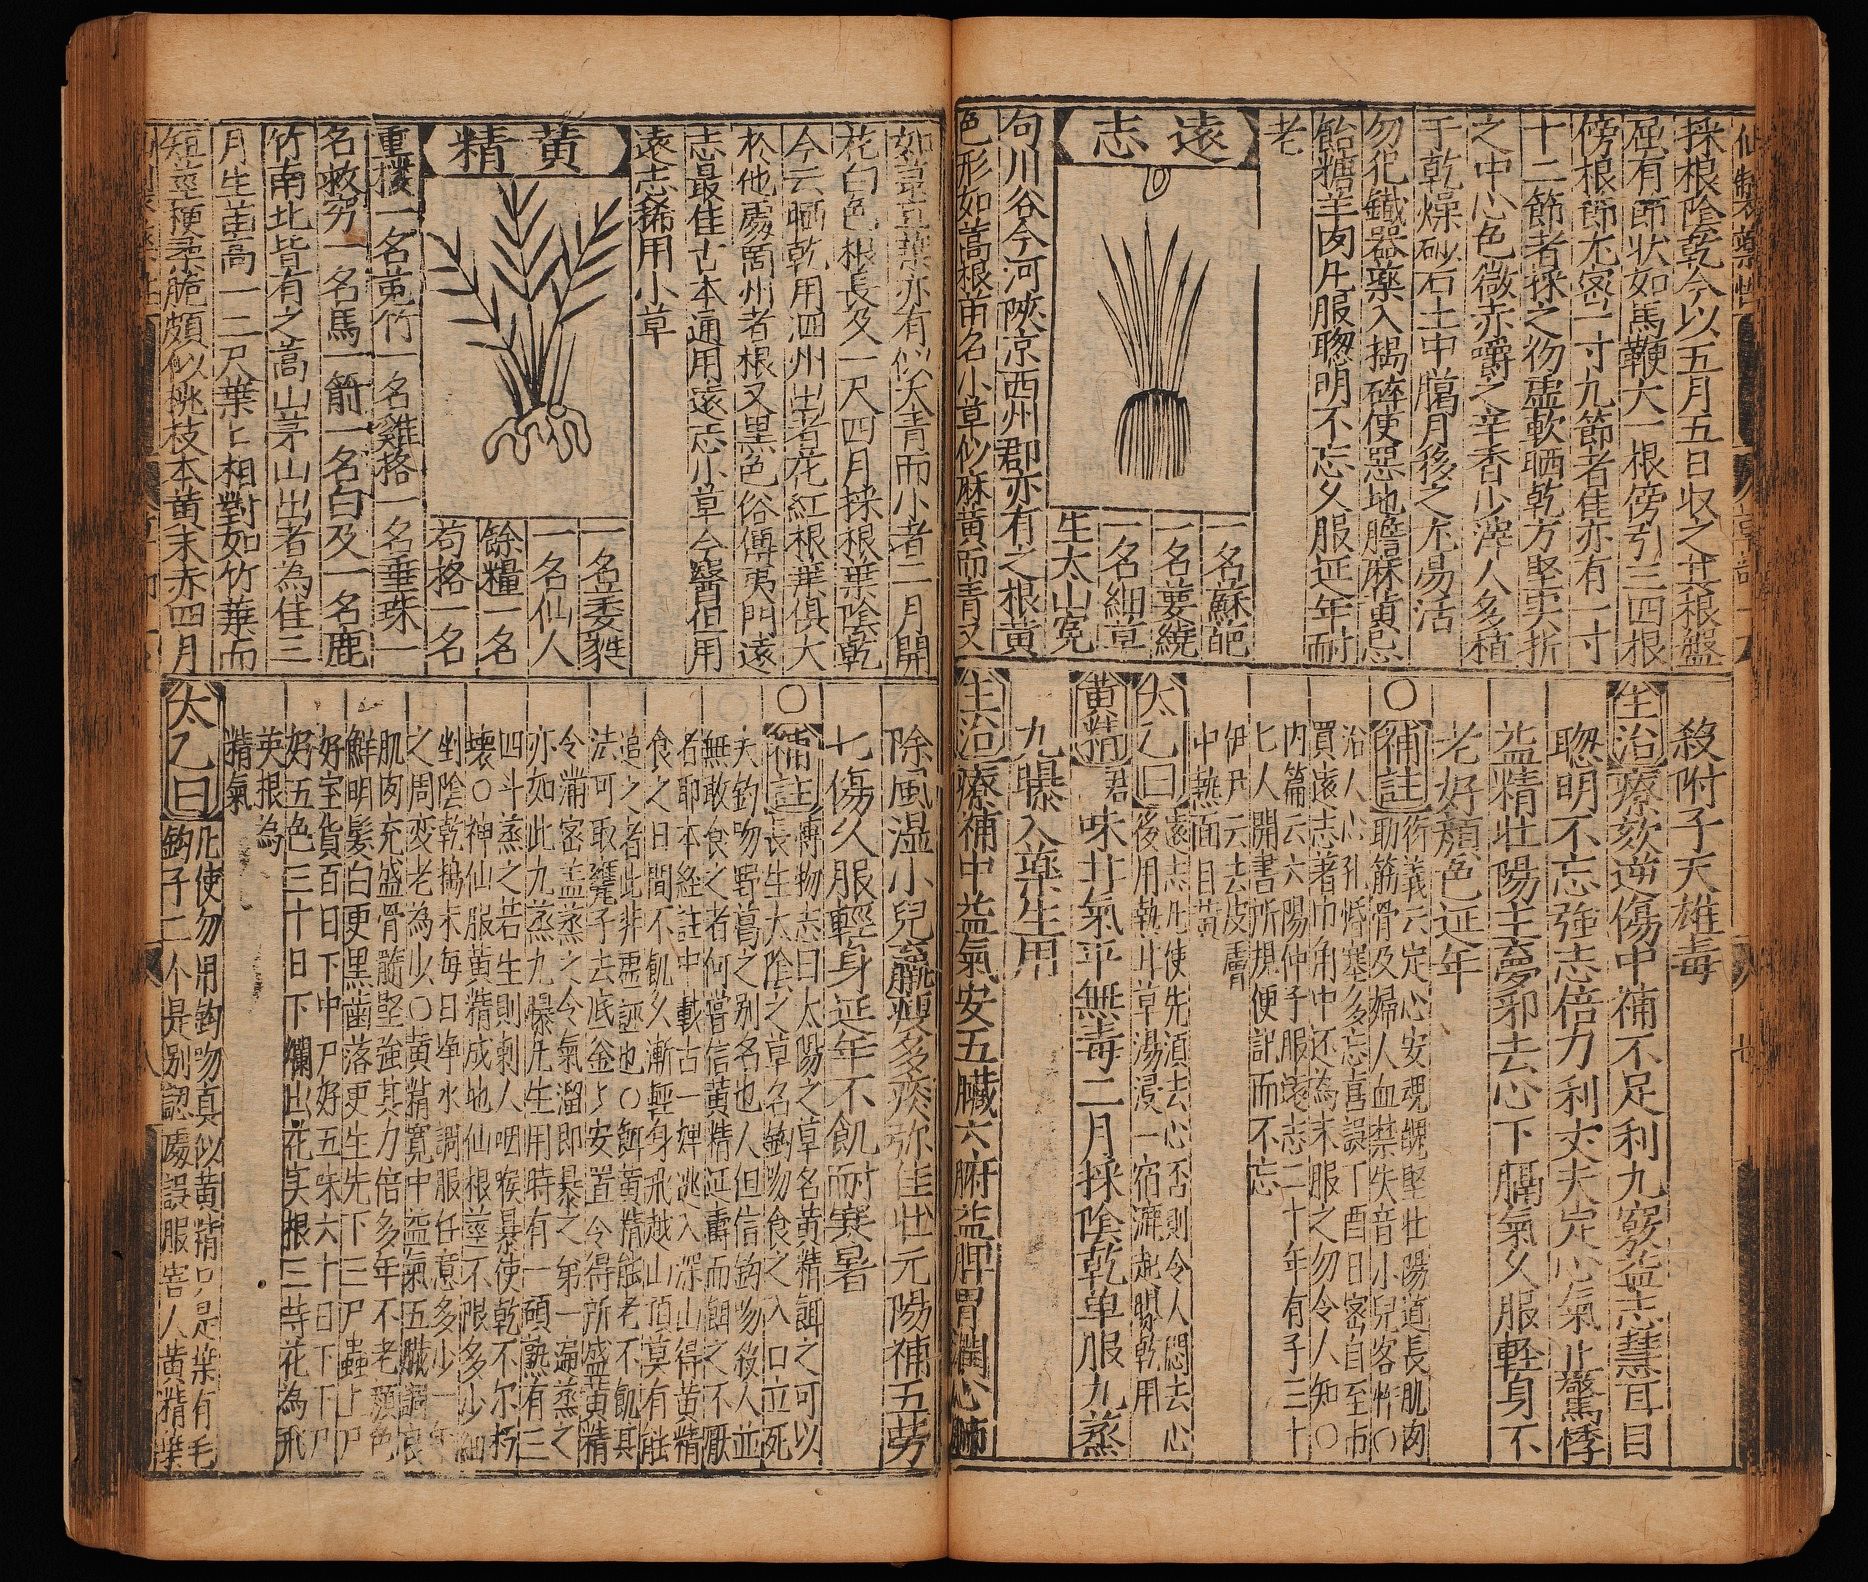 採根陰乾今以五月五日收之其根盤
屈有節状如馬鞭大一根傍引三四根
傍根節尤密一寸九節者佳亦有一寸
十二節者採之彷虛軟晒乾方堅実折
之中心色微赤嚼之辛香少滓人多植
于乾燥砂石土中臈月移之尤易活
勿犯鐵器藥入搗碎使惡地膽麻黄忌
飴糖羊肉凡服聦明不忘久服延年耐
老
遠志
一名蘇蚆
一名葽繞
一名細草
生太山寃
句川谷今河陝京西州郡亦有之根黄
色形如蒿根苗名小草似麻黄而青又
殺附子天雄毒
主治療欬逆傷中補不足利九竅益志慧耳目
聦明不忘強志倍力利丈夫定心氣止驚悸
益精壯陽主夢邪去心下膈氣久服軽身不
老好顔色延年
○補註衍義云定心安魂魄堅壮陽道長肌肉
助筋骨及婦人血禁失音小兒客忤○
治人心孔惛塞多忘喜誤丁酉日宻自至市
買遠志著巾角中还為末服之勿令人知○
内篇云六陽仲子服遠志二十年有子三十
七人開書所視便記而不忘
伊尹云去皮膚
中熱面目黄
太乙曰遠志凡使先湏去心否則令人悶去心
後用熟甘草湯浸一宿漉起曝乾用
黄精君味甘氣平無毒二月採陰乾单服九蒸
九曝入藥生用
主治療補中益氣安五臟六腑益脾胃潤心肺
如葍豆葉亦有似大青而小者二月開
花白色根長及一尺四月採根葉陰乾
今云晒乾用泗州出者花紅根葉俱大
於他處啇州者根又黒色俗傳夷門遠
志最佳古本通用遠志小草今醫但用
遠志稀用小草
黄精
一名萎㽔
一名仙人
餘糧一名
苟格一名
重樓一名菟竹一名雞格一名垂珠一
名救窮一名馬箭一名白及一名鹿
竹南北皆有之蒿山茅山出者為佳三
月生苗高一二尺葉上相對如竹葉而
短莖梗柔脆頗似桃枝本黄末赤四月
除風湿小兒羸瘦多痰弥佳壮元陽補五劳
七傷久服輕身延年不飢而耐寒暑
○補註博物志曰太陽之草名黄精餌之可以
長生太陰之草名鈎吻食之入口立死
夫鈎吻野葛之别名也人但信鈎吻殺人並
無敢食之者何嘗信黄精延壽而餌之不厭
○名耶本経註中載古一婢逃入深山得黄精
食之日間不飢久漸輕身飛越山頂莫有能
追之者此非虚誣也○餌黄精能老不飢其
法可取甕子去底釜上安置令得所盛黄精
令滿宻盖蒸之令氣溜即暴之第一遍蒸之
亦如此九蒸九曝凡生用時有一碩熟有三
四斗蒸之若生則刺人咽喉暴使乾不尔朽
壊○神仙服黄精成地仙根莖不限多少細
剉陰乾搗末每日净水調服任意多少一年
之周変老為少○黄精寛中益氣五臟調良
肌肉充盛骨髓堅強其力倍多年不老顔色
鮮明髮白更黒齒落更生先下三尸蟲上尸
好宝貨百日下中尸好五味六十日下下尸
好五色三十日下爛出花実根三等花為飛
英根為
精氣
太乙曰凡使勿用鈎吻真似黄精只是葉有毛
鈎子二个是别認處誤服害人黄精葉